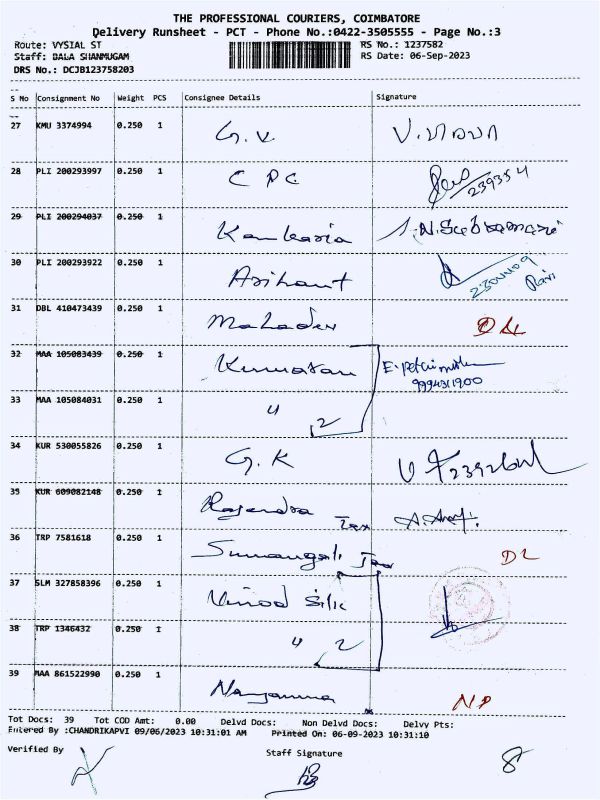 THE PROFESSIONAL COURIERS, COIMBATORE
Delivery Runsheet - PCT - Phone No.:0422-3505555 - Page No.:3
Route: VYSIAL ST RS No.: 1237582
Staff: BALA SHANMUGAM RS Date: 06-Sep-2023
DRS No.: DCJB123758203
S No Consignment No Weight PCS Consignee Details Signature
27 KMU 3374994 0.250 1 G. V.
28 PLI 200293997 0.250 1 C P C 239354
29 PLI 200294037 0.250 1 Kankaria
30 PLI 200293922 0.250 1 Arihant
31 DBL 410473439 0.250 1 Mahadev DL
32 MAA 105083439 0.250 1 Kumaran 9994311900
33 MAA 105084031 0.250 1 " 2
34 KUR 530055826 0.250 1 G. K
35 KUR 609082148 0.250 1 Rajendra Tex
36 TRP 7581618 0.250 1 Sumangali DL
37 SLM 327858396 0.250 1 Vinod Silk
38 TRP 1346432 0.250 1 " 2
39 MAA 861522990 0.250 1 NP
Tot Docs: 39 Tot COD Amt: 0.00 Delvd Docs: Non Delvd Docs: Delvy Pts:
Entered By :CHANDRIKAPVI 09/06/2023 10:31:01 AM Printed On: 06-09-2023 10:31:10
Verified By Staff Signature 8